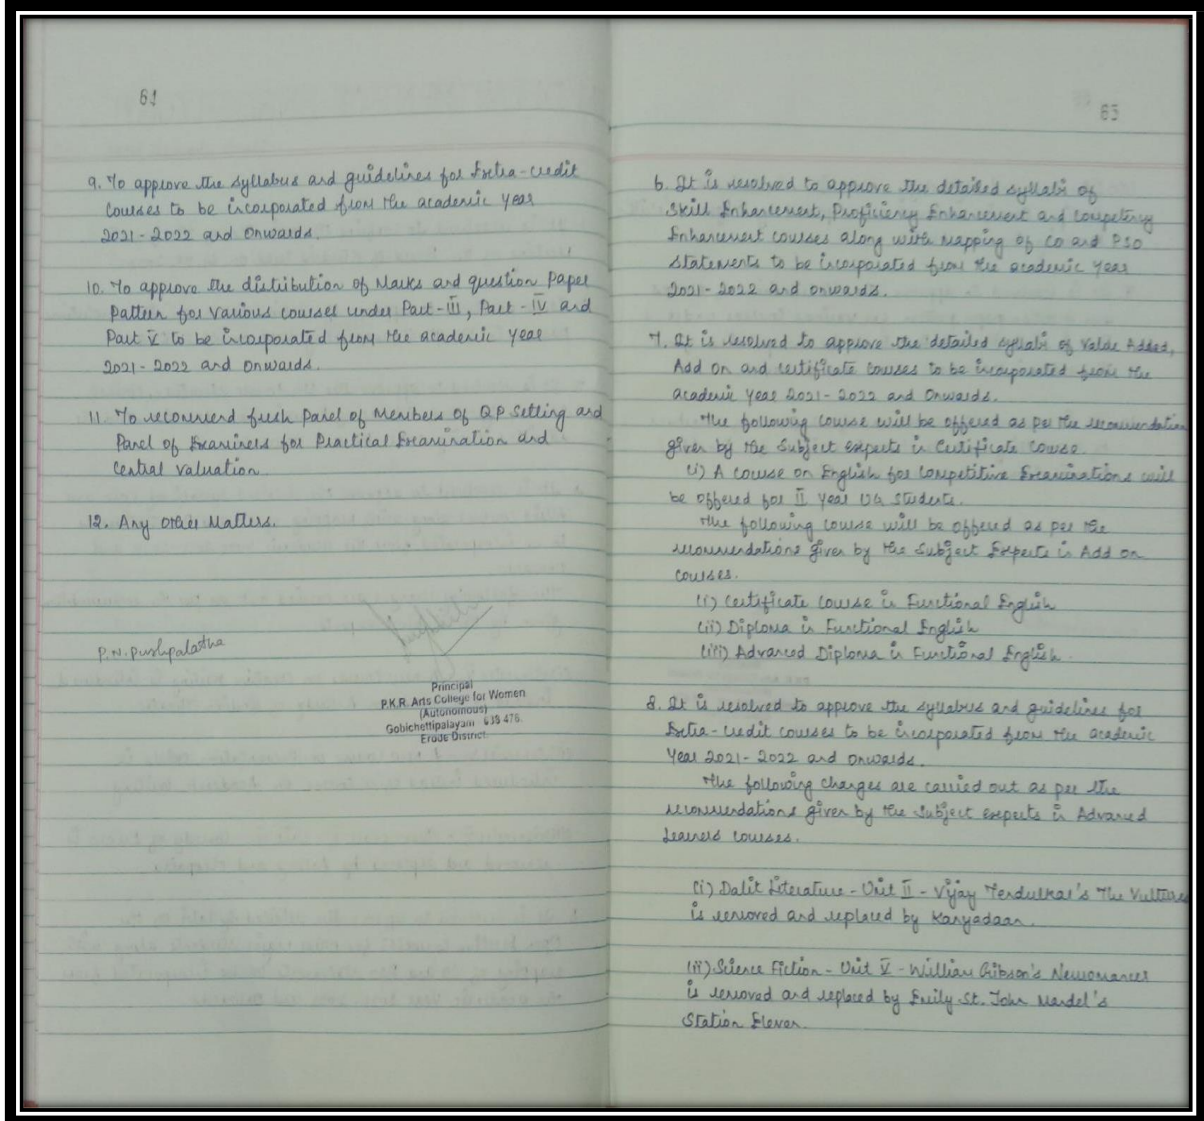 61
9. To approve the syllabus and guidelines for Extra-credit
Courses to be incorporated from the academic year
2021-2022 and Onwards.
10. To approve the distribution of Marks and question Paper
Pattern for various courses under Part-III, Part-IV and
Part V to be incorporated from the academic year
2021-2022 and Onwards.
11. To recommend fresh Panel of Members of QP Setting and
Panel of Examiners for Practical Examination and
Central Valuation.
12. Any other Matters.
P.N. Pushpalatha
Principal
P.K.R. Arts College for Women
(Autonomous)
Gobichettipalayam 638 476.
Erode District.
65
6. It is resolved to approve the detailed syllabi of
Skill Enhancement, Proficiency Enhancement and Competency
Enhancement courses along with mapping of CO and PSO
Statements to be incorporated from the academic year
2021-2022 and onwards.
7. It is resolved to approve the detailed syllabi of Value Added,
Add on and certificate courses to be incorporated from the
academic year 2021-2022 and Onwards.
The following course will be offered as per the recommendation
given by the Subject experts in Certificate Course.
(i) A course on English for Competitive Examinations will
be offered for II Year UG Students.
The following course will be offered as per the
recommendations given by the Subject Experts in Add on
Courses.
(i) Certificate Course in Functional English
(ii) Diploma in Functional English
(iii) Advanced Diploma in Functional English.
8. It is resolved to approve the syllabus and guidelines for
Extra-credit courses to be incorporated from the academic
Year 2021-2022 and onwards.
The following changes are carried out as per the
recommendations given by the Subject experts in Advanced
Learners Courses.
(i) Dalit Literature - Unit II - Vijay Tendulkar's The Vultures
is removed and replaced by Kanyadaan.
(ii) Science Fiction - Unit V - William Gibson's Neuromancer
is removed and replaced by Emily St. John Mandel's
Station Eleven.